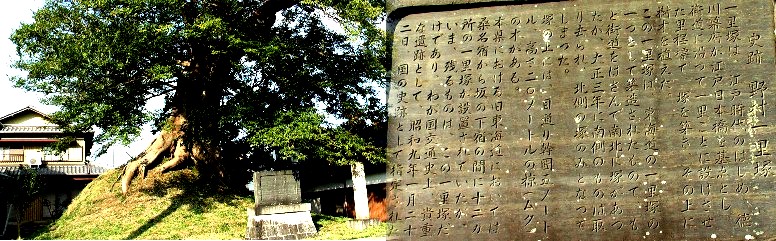 史跡 野村一里塚
一里塚は、江戸時代のはじめ、徳
川幕府が江戸日本橋を基点とし、
街道に沿って一里ごとに設けさせ
た里程標で、塚を築き、その上に
樹木を植えた。
この一里塚は、東海道の一里塚の
一つとして築造されたもので、も
と街道をはさんで南北に塚があっ
たが、大正三年に南側のものは取
り去られ、北側の塚のみとなって
しまった。
塚の上には、目通り幹囲五メート
ル、高さ二〇メートルの椋(ムク)
の木がある。
本県における旧東海道においては
桑名宿から坂の下宿の間に十二カ
所の一里塚が設置されていたが、
いま、残るものは、この一里塚だ
けであり、わが国交通史上、貴重
な遺跡として、昭和九年一月二十
二日、国の史跡として指定された